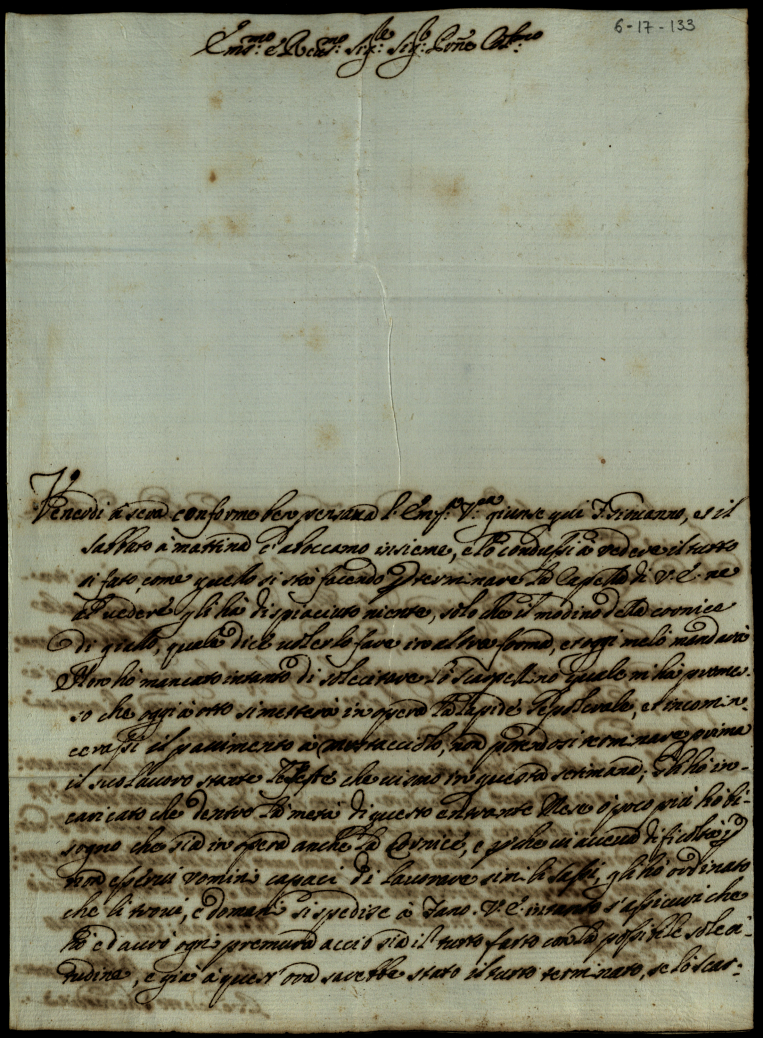 6-17-133
Em.mo e R.mo Sig.re Sig.re P.rone Col.mo
Venerdi à sera conforme ben pensava l'Em.za V.ra giunse quì, et il
Sabbato à mattina c'aboccamo insieme, e lo condussi à vedere il tutto
si fato, come quello si stà facendo p terminare la Capella di V. E. ne
al vedere gli hà dispiaciuto niente, solo che il modino della cornice
di giallo, quale dice volerlo fare in altra forma, et oggi me lo mandarà
Non hò mancato intanto di solecitare lo Scarpellino quale m'hà promes-
so che oggi à otto si metterà in opera la lapide sepolcrale, et incomin-
cerassi il pavimento à mostacciolo, non potendosi terminare prima
il suo lavoro stante le feste che vi sono in questa settimana; Gli hò in-
caricato che dentro la metà di questo entrante Mese ò poco più hò bi-
sogno che sia in opera anche la Cornice, e perche vi aveva dificoltà p
non esservi uomini capaci di lavorare simili sassi, gli hò ordinato
che li trovi, e domani si spedisce à Fano. V. E. intanto s'assicuri che
hò ed avrò ogni premura acciò sia il tutto fatto con la possibile soleci-
tudine, e già à quest'ora sarebbe stato il tutto terminato, se lo Scar-